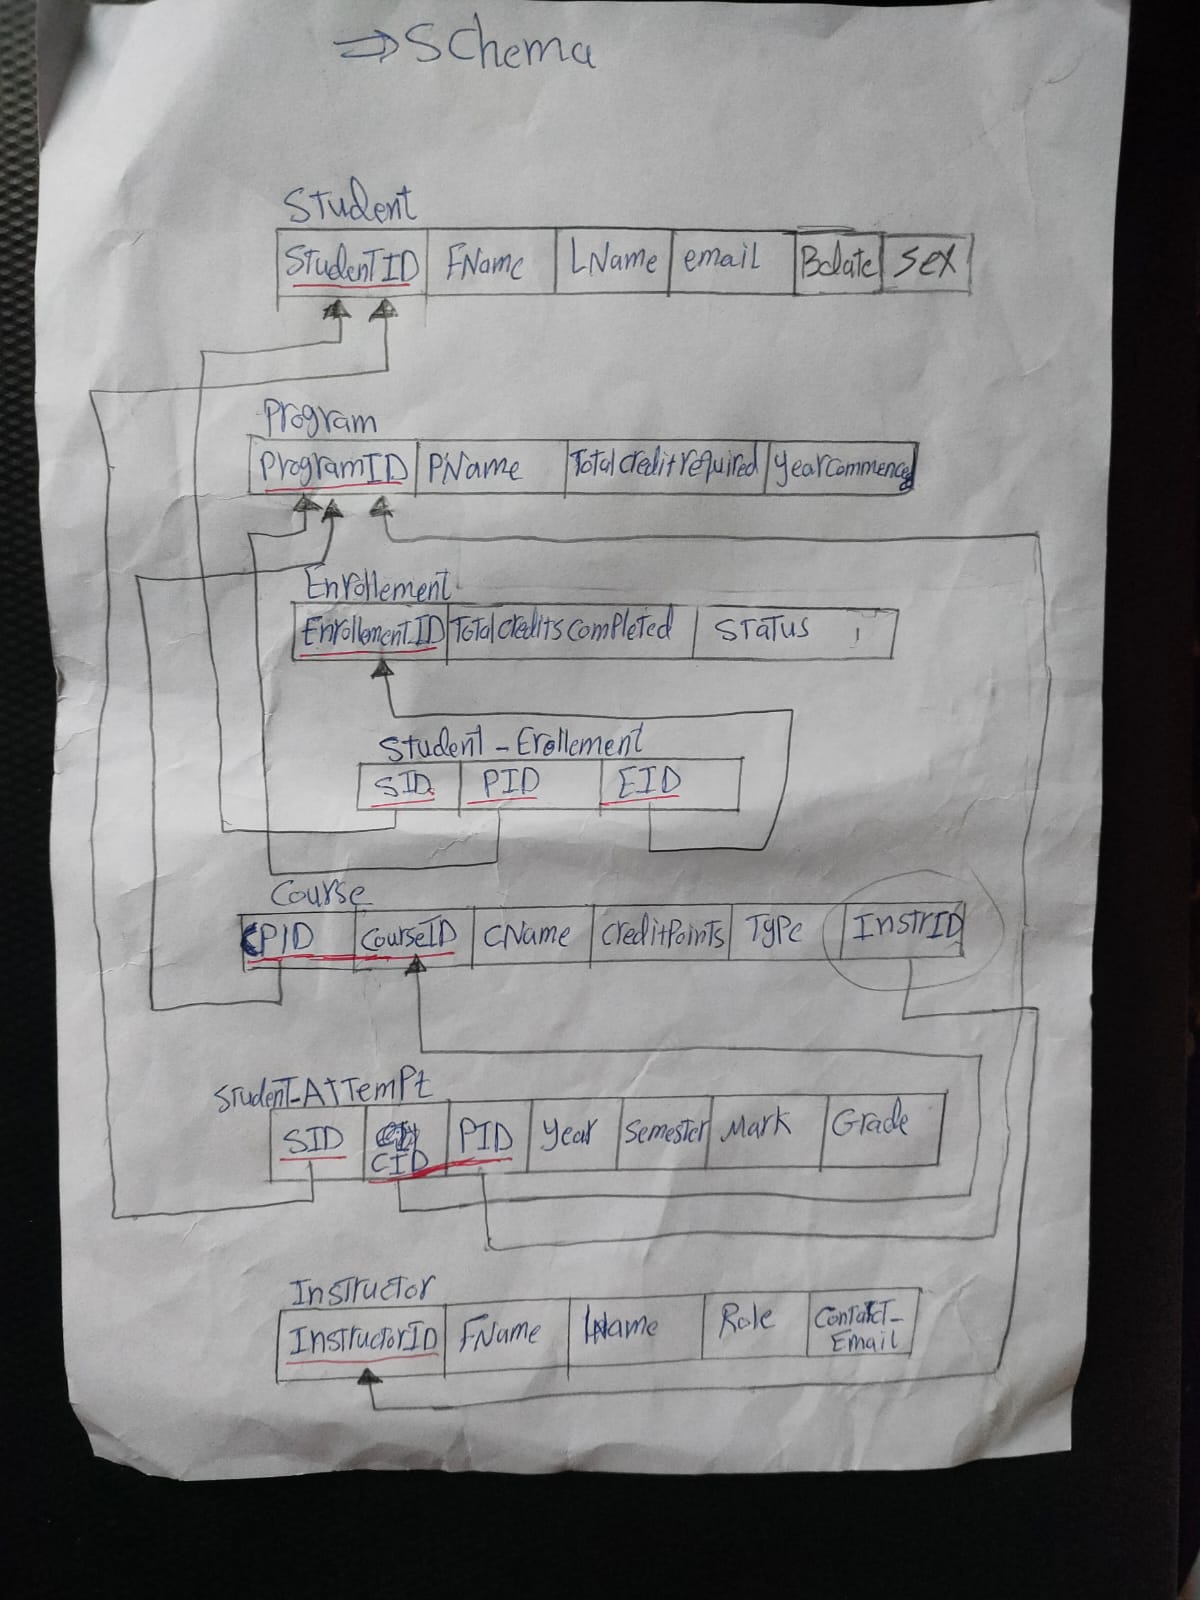 ⇒ SChema
Student
StudentID FName LName email Bdate sex
Program
ProgramID PName Totalcreditrequired yearcommenced
Enrollement
Enrollement_ID TotalcreditsCompleted Status
Student - Erollement
SID PID EID
Course
PID CourseID CName CreditPoints Type InstrID
Student_Attempt
SID CID PID year Semester Mark Grade
Instructor
InstructorID FName LName Role Contact_
Email